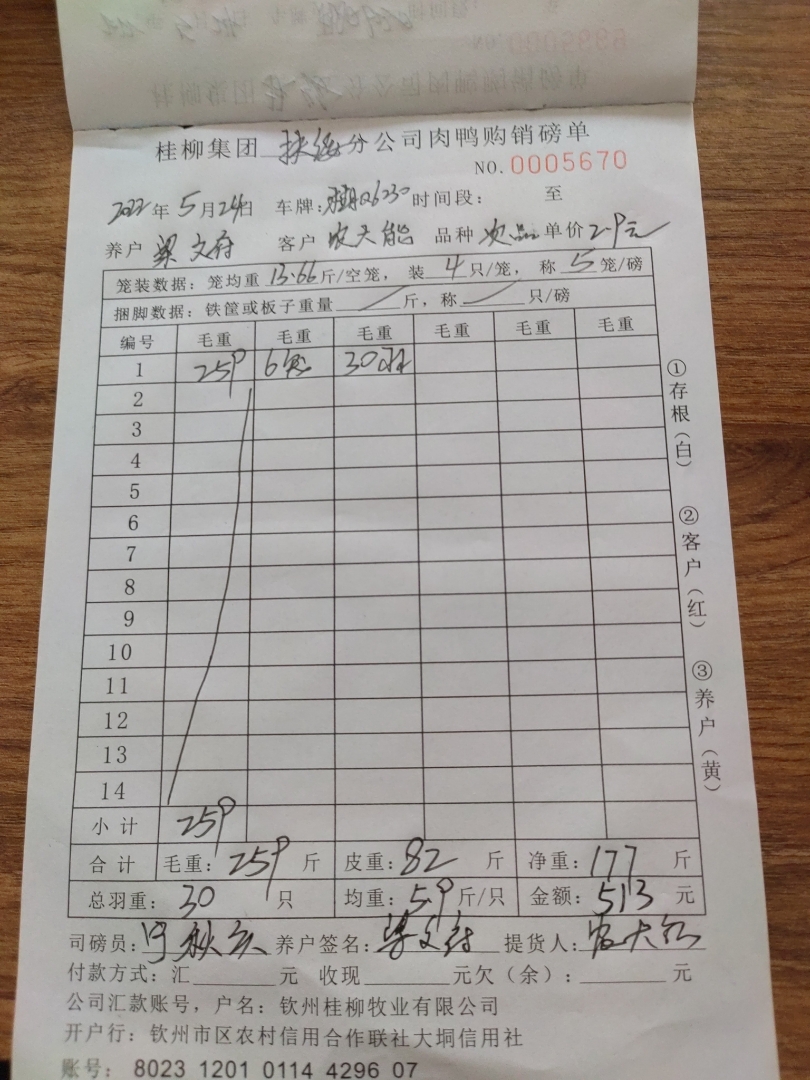 桂柳集团 扶绥 分公司肉鸭购销磅单
NO. 0005670
2022年 5月24日 车牌: 06230 时间段: 至
养户 梁文府 客户 农大能 品种 次品 单价 2.9元
笼装数据: 笼均重 13.66 斤/空笼, 装 4 只/笼, 称 5 笼/磅
捆脚数据: 铁筐或板子重量 斤, 称 只/磅
编号 毛重 毛重 毛重 毛重 毛重 毛重
1 259 6笼 30羽
2
3
4
5
6
7
8
9
10
11
12
13
14
小计 259
合计 毛重: 259 斤 皮重: 82 斤 净重: 177 斤
总羽重: 30 只 均重: 5.9 斤/只 金额: 513 元
司磅员: 养户签名: 梁文府 提货人: 农大能
付款方式: 汇 元 收现 元欠(余): 元
公司汇款账号, 户名: 钦州桂柳牧业有限公司
开户行: 钦州市区农村信用合作联社大垌信用社
账号: 8023 1201 0114 4296 07
①存根(白)
②客户(红)
③养户(黄)